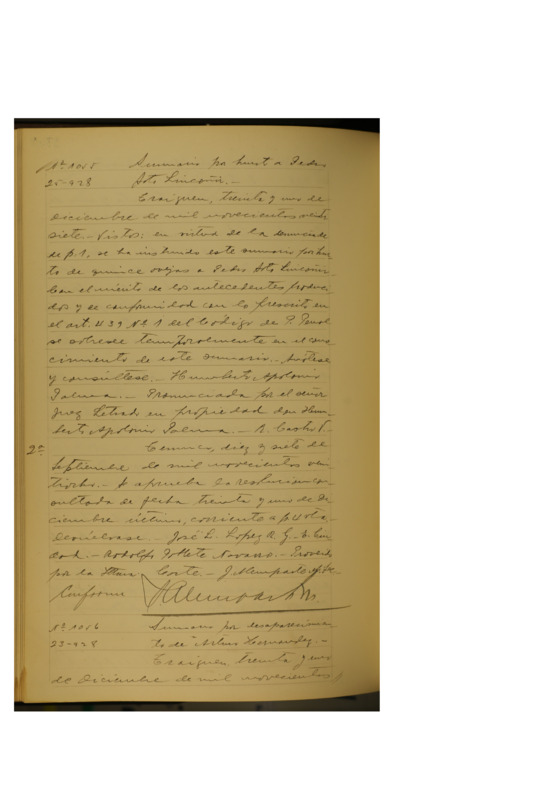 Nº 1015 Sumario por hurto a Pedro
25-928 Soto Lincoñir.-
Traiguen, treinta y uno de
diciembre de mil novecientos veinti
siete.- Vistos: en virtud de la denuncia de
de p. 1, se ha instruido este sumario por hur
to de quince ovejas a Pedro Soto Lincoñir.
Con el mérito de los antecedentes produci
dos y de conformidad con lo prescrito en
el art. 439 Nº 1 del Código de P. Penal
se sobresée temporalmente en el cono
cimiento de este sumario.- Anótese
y consúltese.- Humberto Apolonio
Palma.- Pronunciada por el señor
Juez Letrado en propiedad don Hum
berto Apolonio Palma.- R. Castro
2ª Temuco, diez y siete de
Septiembre de mil novecientos vein
tiocho.- Se aprueba la resolución con
sultada de fecha treinta y uno de Di
ciembre último, corriente a p. 4 vta.-
Devuélvase.- José L. Lopez A. G.
Rodolfo Navarro.- Proveido
por la Iltma. Corte.- J. Alemparte
Conforme
Nº 1016 Sumario por desaparecimien
23-928 to de Arturo Hernandez.-
Traiguen, treinta y uno
de Diciembre de mil novecientos